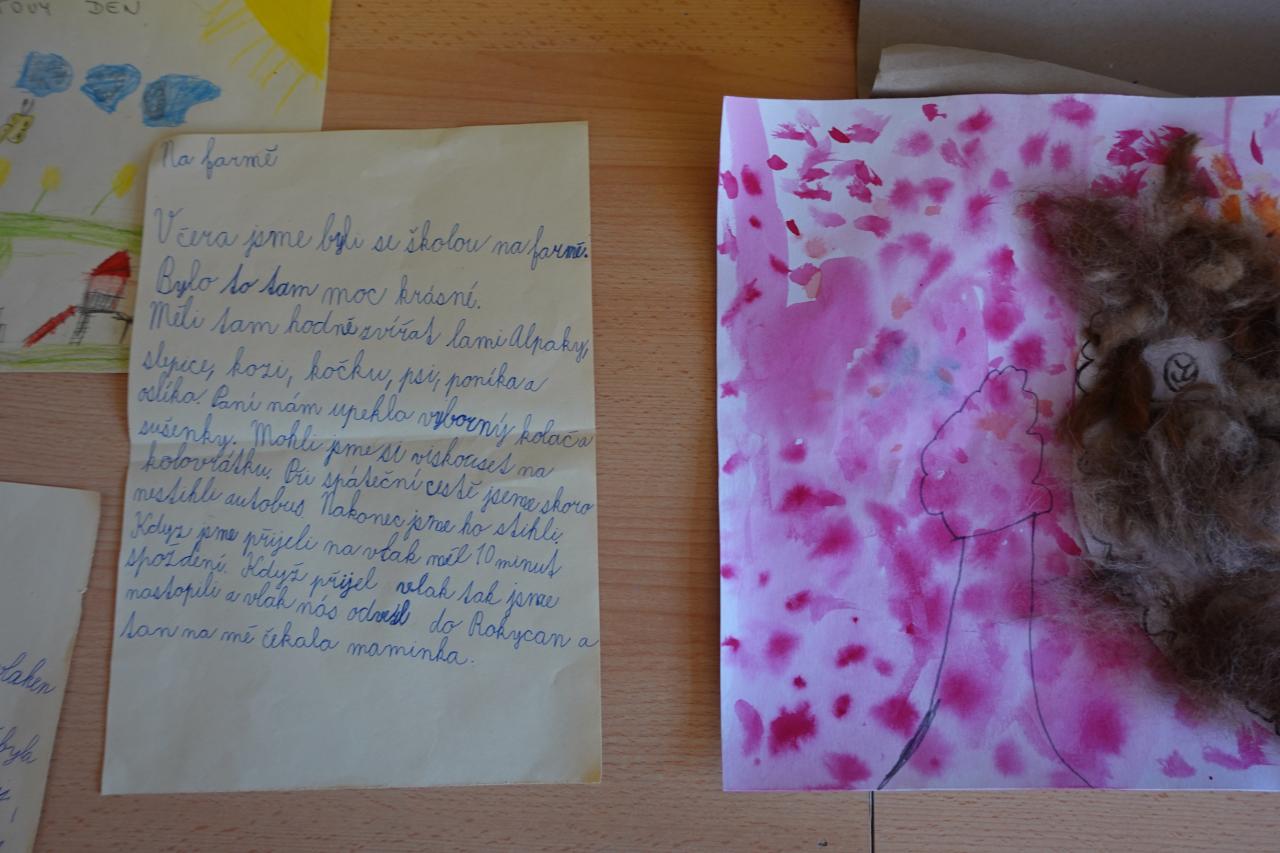 TOVÝ DEN
Na farmě
Včera jsme byli se školou na farmě.
Bylo to tam moc krásné.
Měli tam hodně zvířat lami Alpaky,
slepice, kozi, kočku, psi, poníka a
oslíka. Paní nám upekla výborný koláč a
sušenky. Mohli jsme si viskouset na
kolovrátku. Při spáteční cestě jseme skoro
nestihli autobus Nakonec jsme ho stihli.
Kdyz jsme přijeli na vlak měl 10 minut
spoždění. Když přijel vlak tak jsme
nastopili a vlak nás odvesl do Rokycan a
tam na mě čekala maminka.
byla